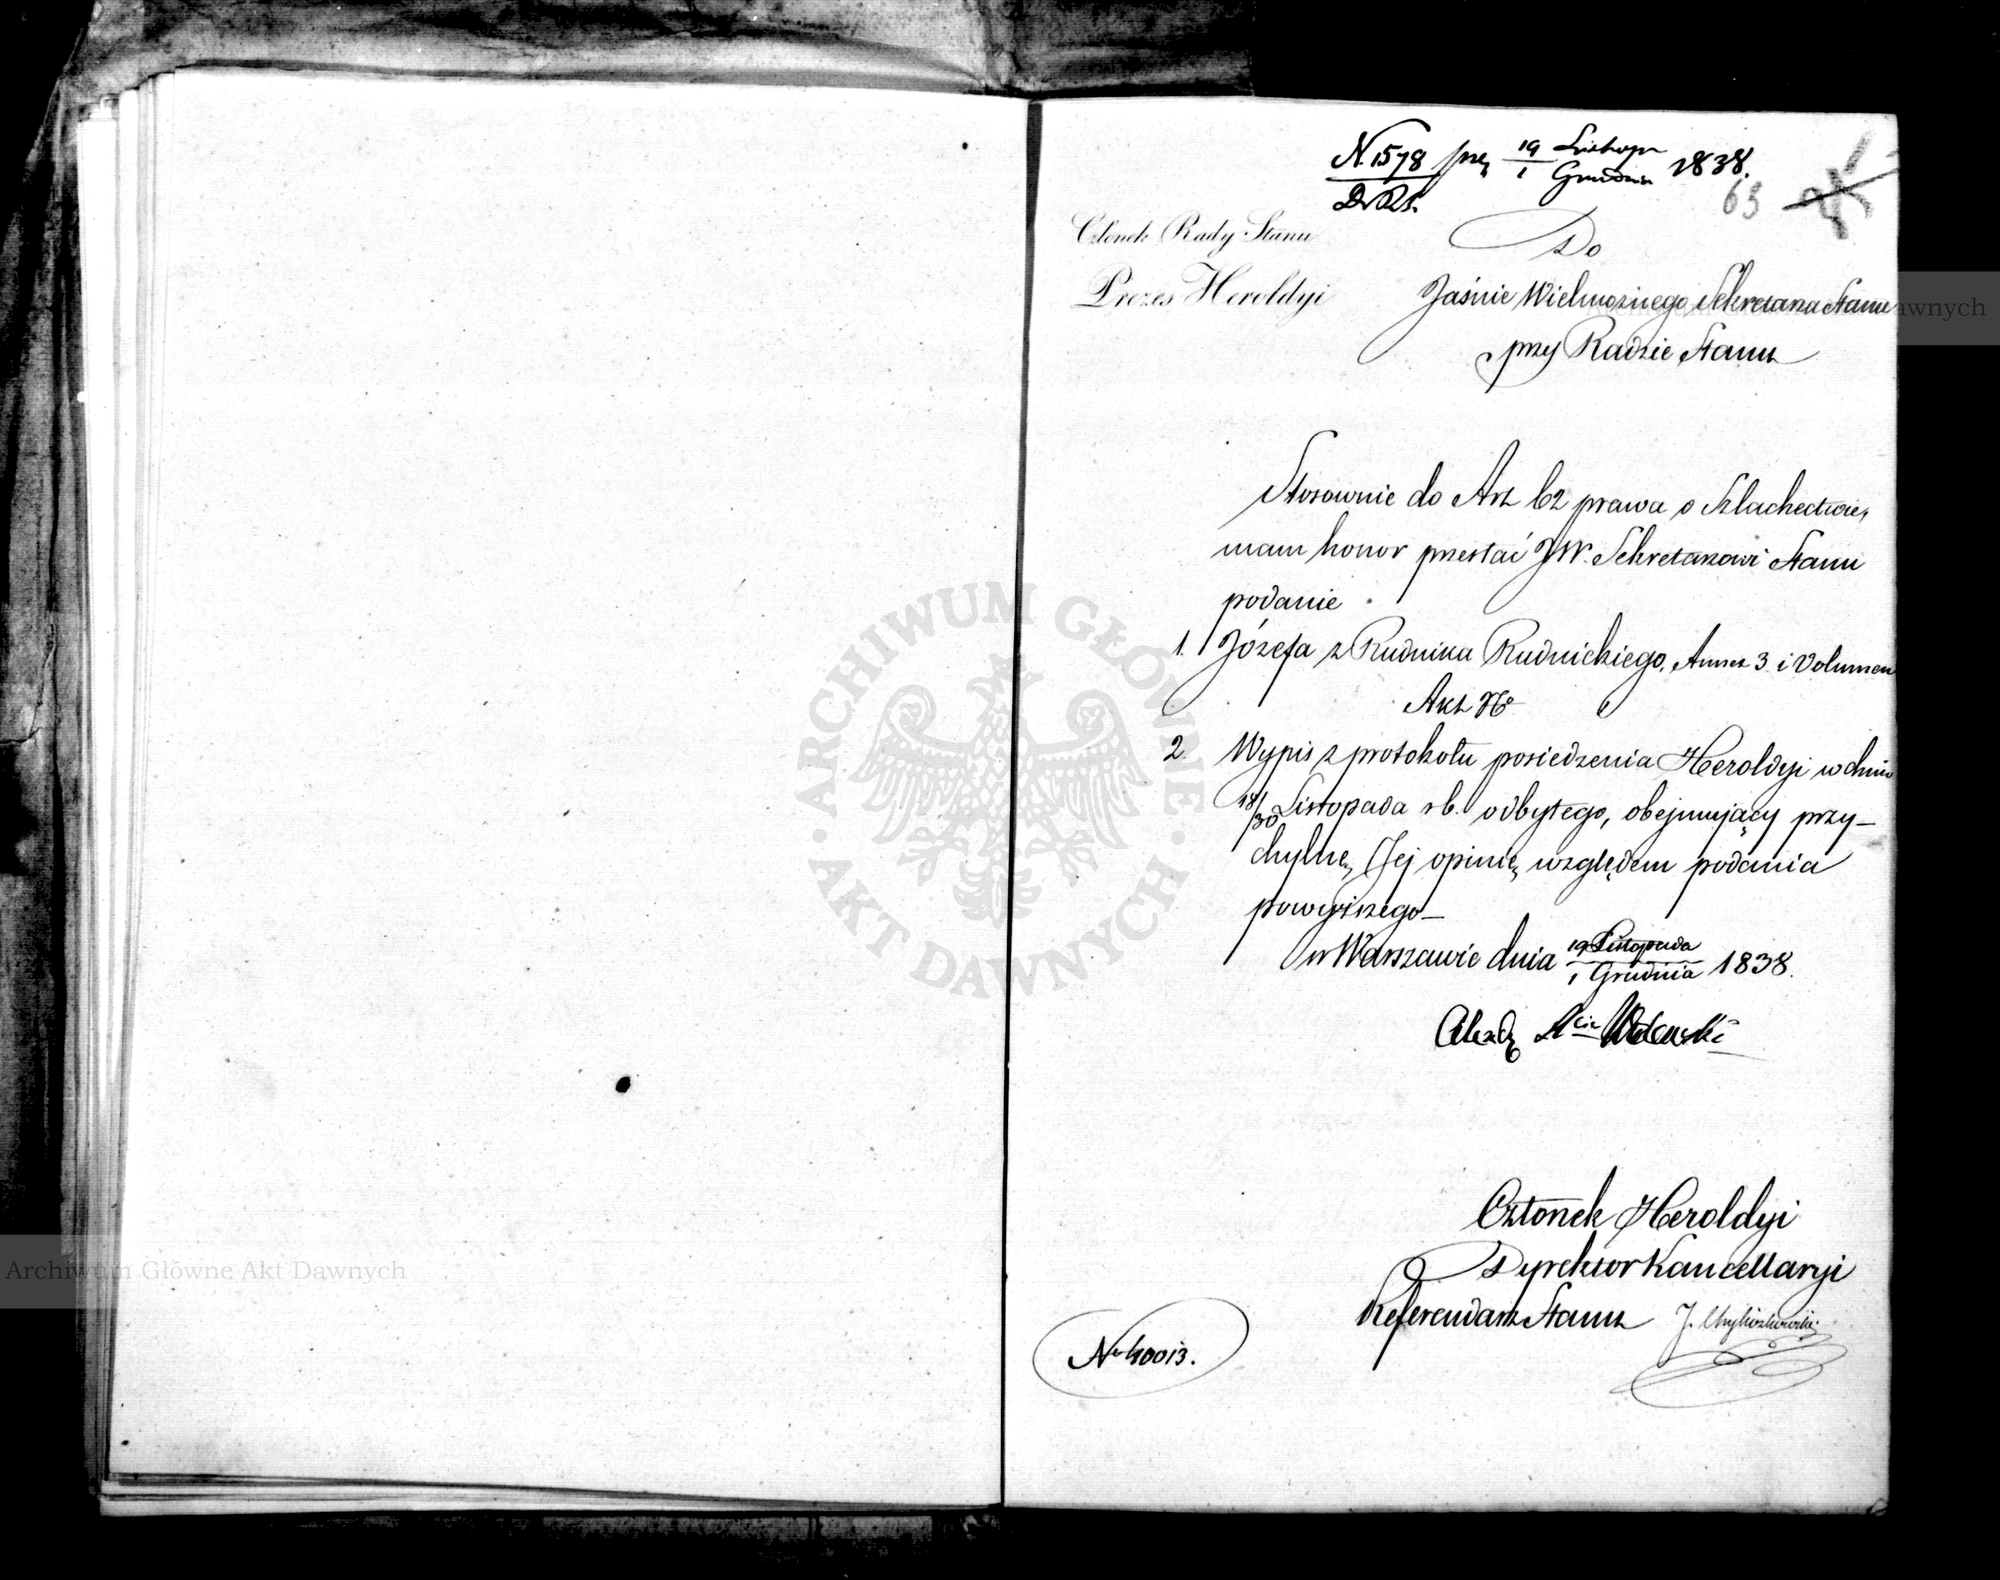 N. 1578 19 Listop 1838.
1 Grudnia
63
Członek Rady Stanu
Do
Prezes Heroldyi
Jaśnie Wielmożnego Sekretarza Stanu
przy Radzie Stanu
Stosownie do Art 62 prawa o Szlachectwie,
mam honor przesłać JW. Sekretarzowi Stanu
podanie
1. Józefa z Rudnika Rudnickiego, Annex 3 i Volumen
Akt No
2. Wypis z protokołu posiedzenia Heroldyi w dniu
18/30 Listopada rb. odbytego, obejmujący przy-
chylną Jej opinię względem podania
powyższego
w Warszawie dnia 19 Listopada 1838.
1 Grudnia
Członek Heroldyi
Dyrektor Kancellaryi
Referendarz Stanu
No 40013.
ARCHIWUM GŁÓWNE AKT DAWNYCH
Archiwum Główne Akt Dawnych